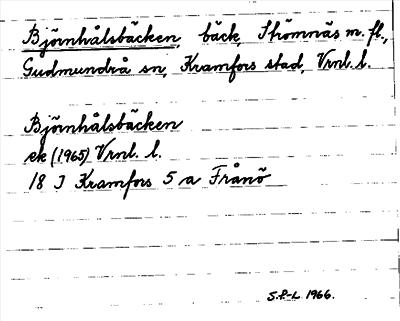 Björnhålsbäcken, bäck, Strömnäs m. fl.,
Gudmundrå sn, Kramfors stad, Vrnl. l.
Björnhålsbäcken
ek (1965) Vrnl. l.
18 J Kramfors 5 a Frånö
S.P-L 1966.